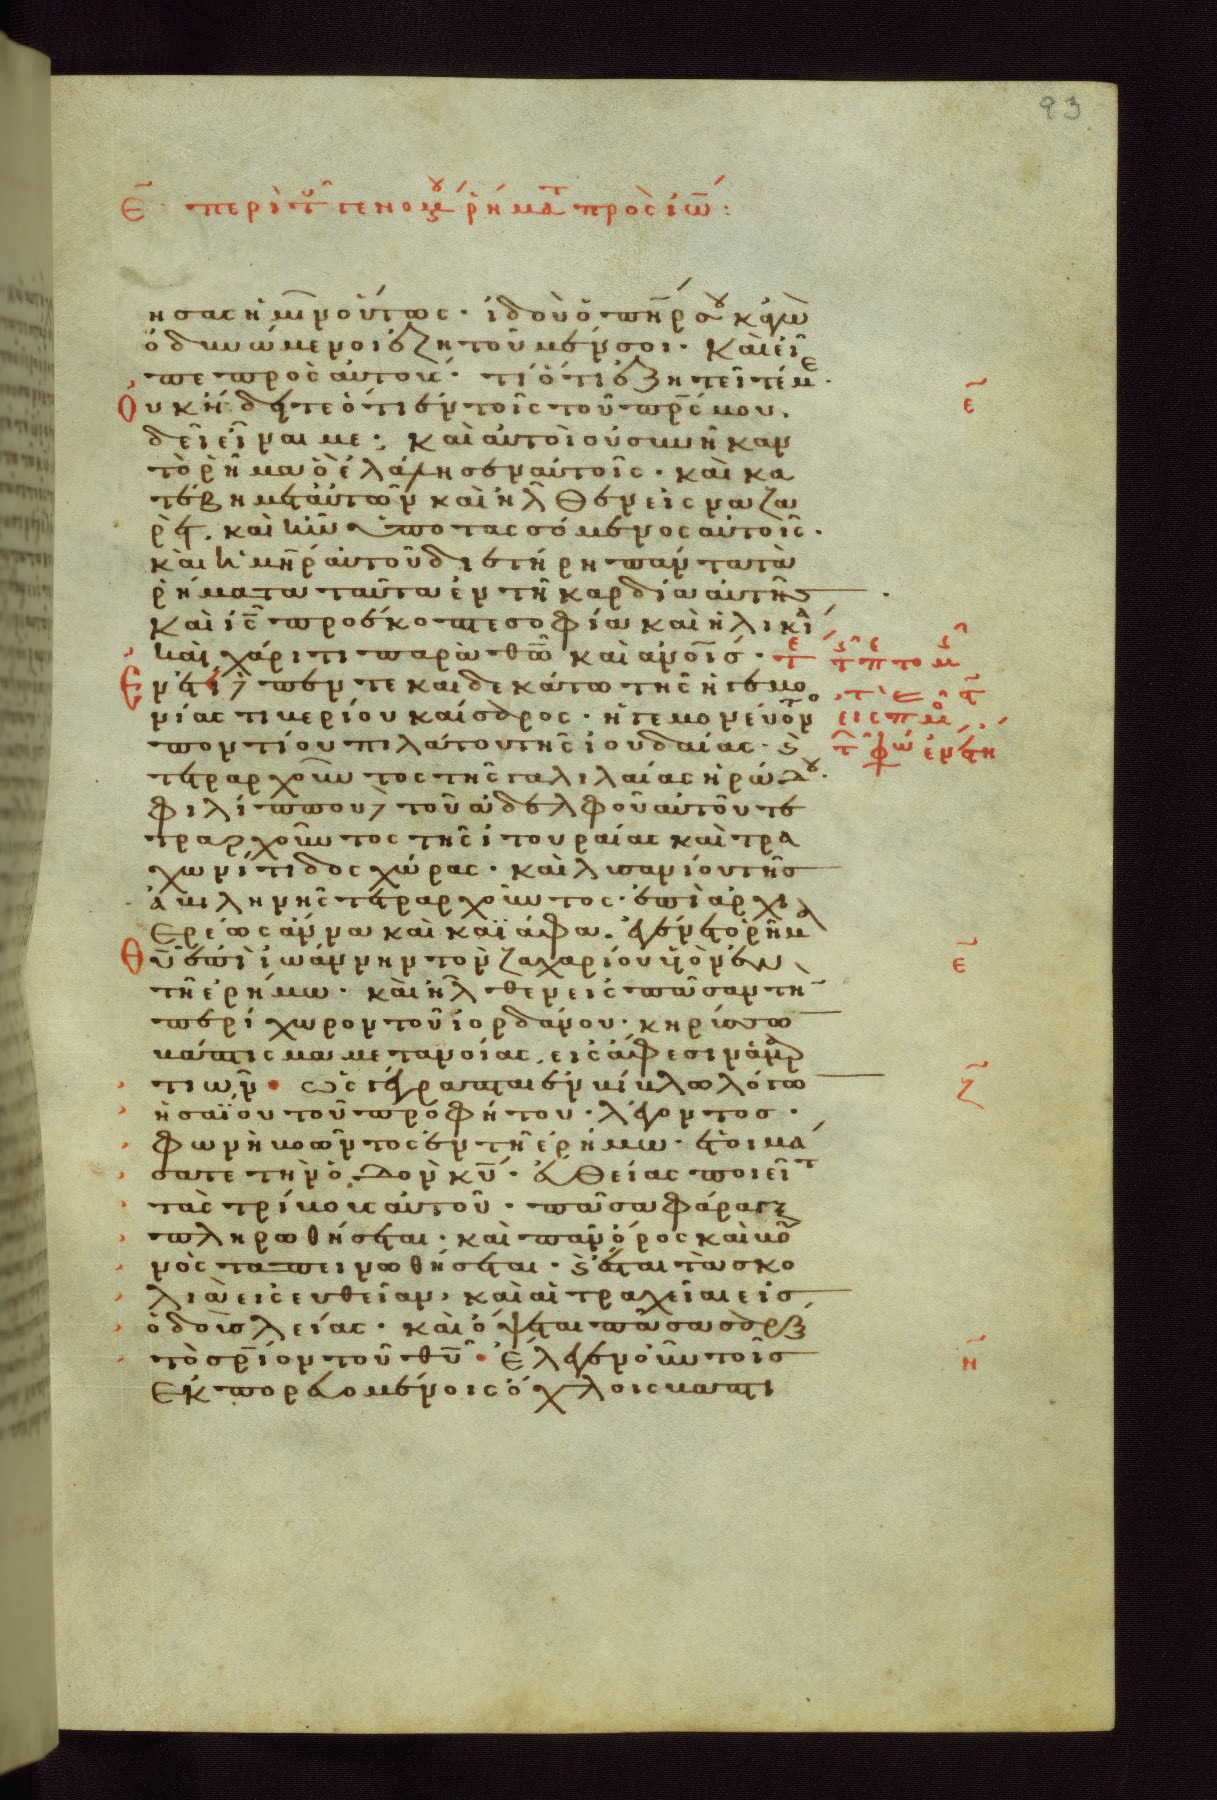 93
Ε̅ · περὶ τοῦ γενομ(ένου) ῥήματ(ος) πρὸς ἰω̅ :
ησας ἡμῖν οὕτως · ἰδοὺ ὁ π̅η̅ρ σου κἀγὼ
ὀδυνώμενοι ἐζητοῦμέν σοι · καὶ εἶ
πε πρὸς αὐτούς · τί ὅτι ἐζητεῖτέ με ·
Οὐκ ᾔδειτε ὅτι ἐν τοῖς τοῦ π̅ρ̅ς μου
ε̅
δεῖ εἶναι με · καὶ αὐτοὶ οὐ συνῆκαν
τὸ ῥῆμα ὃ ἐλάλησεν αὐτοῖς · καὶ κα
τέβη μετ αὐτῶν καὶ ἦλθεν εἰς ναζα
ρέτ · καὶ ἦν ὑποτασσόμενος αὐτοῖς ·
καὶ ἡ μ̅η̅ρ αὐτοῦ διετήρη πάντα τὰ
ῥήματα ταῦτα ἐν τῇ καρδία αὐτῆς
καὶ ι̅ς̅ προέκοπτε σοφία καὶ ἡλικία
καὶ χάριτι παρὰ θ̅ω̅ καὶ ἀν̅ο̅ις ·
Ἐν ἔτει πεντε και δεκάτω τῆς ἡγεμο
νίας τιβερίου καίσαρος · ἡγεμονεύοντ(ος)
ποντίου πιλάτου τῆς ἰουδαίας · καὶ
τετραρχοῦντος τῆς γαλιλαίας ἡρώδου ·
φιλίππου τοῦ ἀδελφοῦ αὐτοῦ τε
τραρχοῦντος τῆς ἰτουραίας καὶ τρα
χωνίτιδος χώρας · καὶ λυσανίου τῆς
ἀβιληνῆς τετραρχοῦντος · ἐπὶ ἀρχι
ερέως ἄννα καὶ καϊάφα · ἐγένετο ῥῆμα
Θ̅υ̅ ἐπὶ ἰωάννην τὸν ζαχαρίου υἱὸν ἐν
ε̅
τῇ ἐρήμω · καὶ ἦλθεν εἰς πᾶσαν τὴν
περίχωρον τοῦ ἰορδάνου · κηρύσσων
βάπτισμα μετανοίας εἰς ἄφεσιν ἁμαρ
τιῶν · ὡς γέγραπται ἐν βίβλω λόγω
ζ̅
ἡσαΐου τοῦ προφήτου · λέγοντος ·
φωνὴ βοῶντος ἐν τῇ ἐρήμω · ἑτοιμά
σατε τὴν ὁδὸν κ̅υ̅ · εὐθείας ποιεῖτ(ε)
τὰς τρίβους αὐτοῦ · πᾶσα φάραγξ
πληρωθήσεται · καὶ πᾶν ὄρος καὶ βου
νὸς ταπεινωθήσεται · καὶ ἔσται τὰ σκο
λιὰ εἰς εὐθεῖαν, καὶ αἱ τραχεῖαι εἰς
ὁδοὺς λείας · καὶ ὄψεται πᾶσα σὰρξ
τὸ σ̅ρ̅ιον τοῦ θ̅υ̅ · Ἔλεγεν οὖν τοῖς
η̅
ἐκπορευομένοις ὄχλοις βαπτι